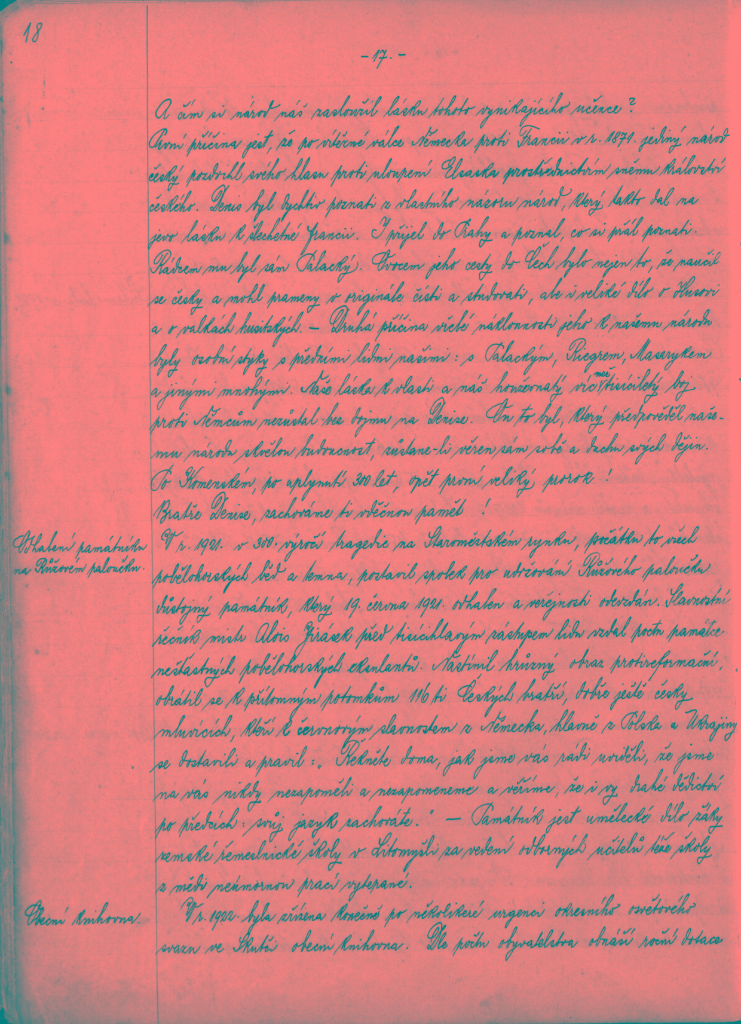 18
- 17. -
A čím si národ náš zasloužil lásku tohoto vynikajícího učence?
První příčina jest, že po vítězné válce Německa proti Francii v r. 1871. jediný národ
český pozdvihl svého hlasu proti uloupení Elsaska prostřednictvím sněmu království
českého. Denis byl dychtiv poznati z vlastního názoru národ, který takto dal na
jevo lásku k šlechetné Francii. I přijel do Prahy a poznal, co si přál poznati.
Rádcem mu byl sám Palacký. Ovocem jeho cesty do Čech bylo nejen to, že naučil
se česky a mohl prameny v originále čísti a studovati, ale i veliké dílo o Husovi
a o válkách husitských. — Druhá příčina vřelé náklonnosti jeho k našemu národu
byly osobní styky s předními lidmi našimi: s Palackým, Riegrem, Masarykem
a jinými mnohými. Naše láska k vlasti a náš houževnatý více než tisíciletý boj
proti Němcům nezůstal bez dojmu na Denise. On to byl, který předpověděl naše-
mu národu skvělou budoucnost, zůstane-li věren sám sobě a duchu svých dějin.
Po Komenském, po uplynutí 300 let, opět první veliký prorok!
Bratře Denise, zachováme ti vděčnou paměť!
Odhalení památníku
na Růžovém paloučku.
V r. 1921. v 300. výročí tragedie na Staroměstském rynku, počátku to všech
pobělohorských běd a temna, postavil spolek pro udržování Růžového paloučku
důstojný památník, který 19. června 1921 odhalen a veřejnosti odevzdán. Slavnostní
řečník mistr Alois Jirásek před tisícihlavým zástupem lidu vzdal poctu památce
nešťastných pobělohorských exulantů. Nastínil hrůzný obraz protireformační,
obrátil se k přítomným potomkům 116 ti Českých bratří, dobře ještě česky
mluvících, kteří k červnovým slavnostem z Německa, hlavně z Polska a Ukrajiny
se dostavili a pravil: „Řekněte doma, jak jsme vás rádi uviděli, že jsme
na vás nikdy nezapoměli a nezapomeneme a věříme, že i vy drahé dědictví
po předcích: svůj jazyk zachováte." — Památník jest umělecké dílo žáků
zemské řemeslnické školy v Litomyšli za vedení odborných učitelů téže školy
z mědi neúmornou prací vytepané.
Obecní knihovna.
V r. 1922 byla zřízena konečně po několikeré urgenci okresního osvětového
svazu ve Skutči obecní knihovna. Dle počtu obyvatelstva obnáší roční dotace